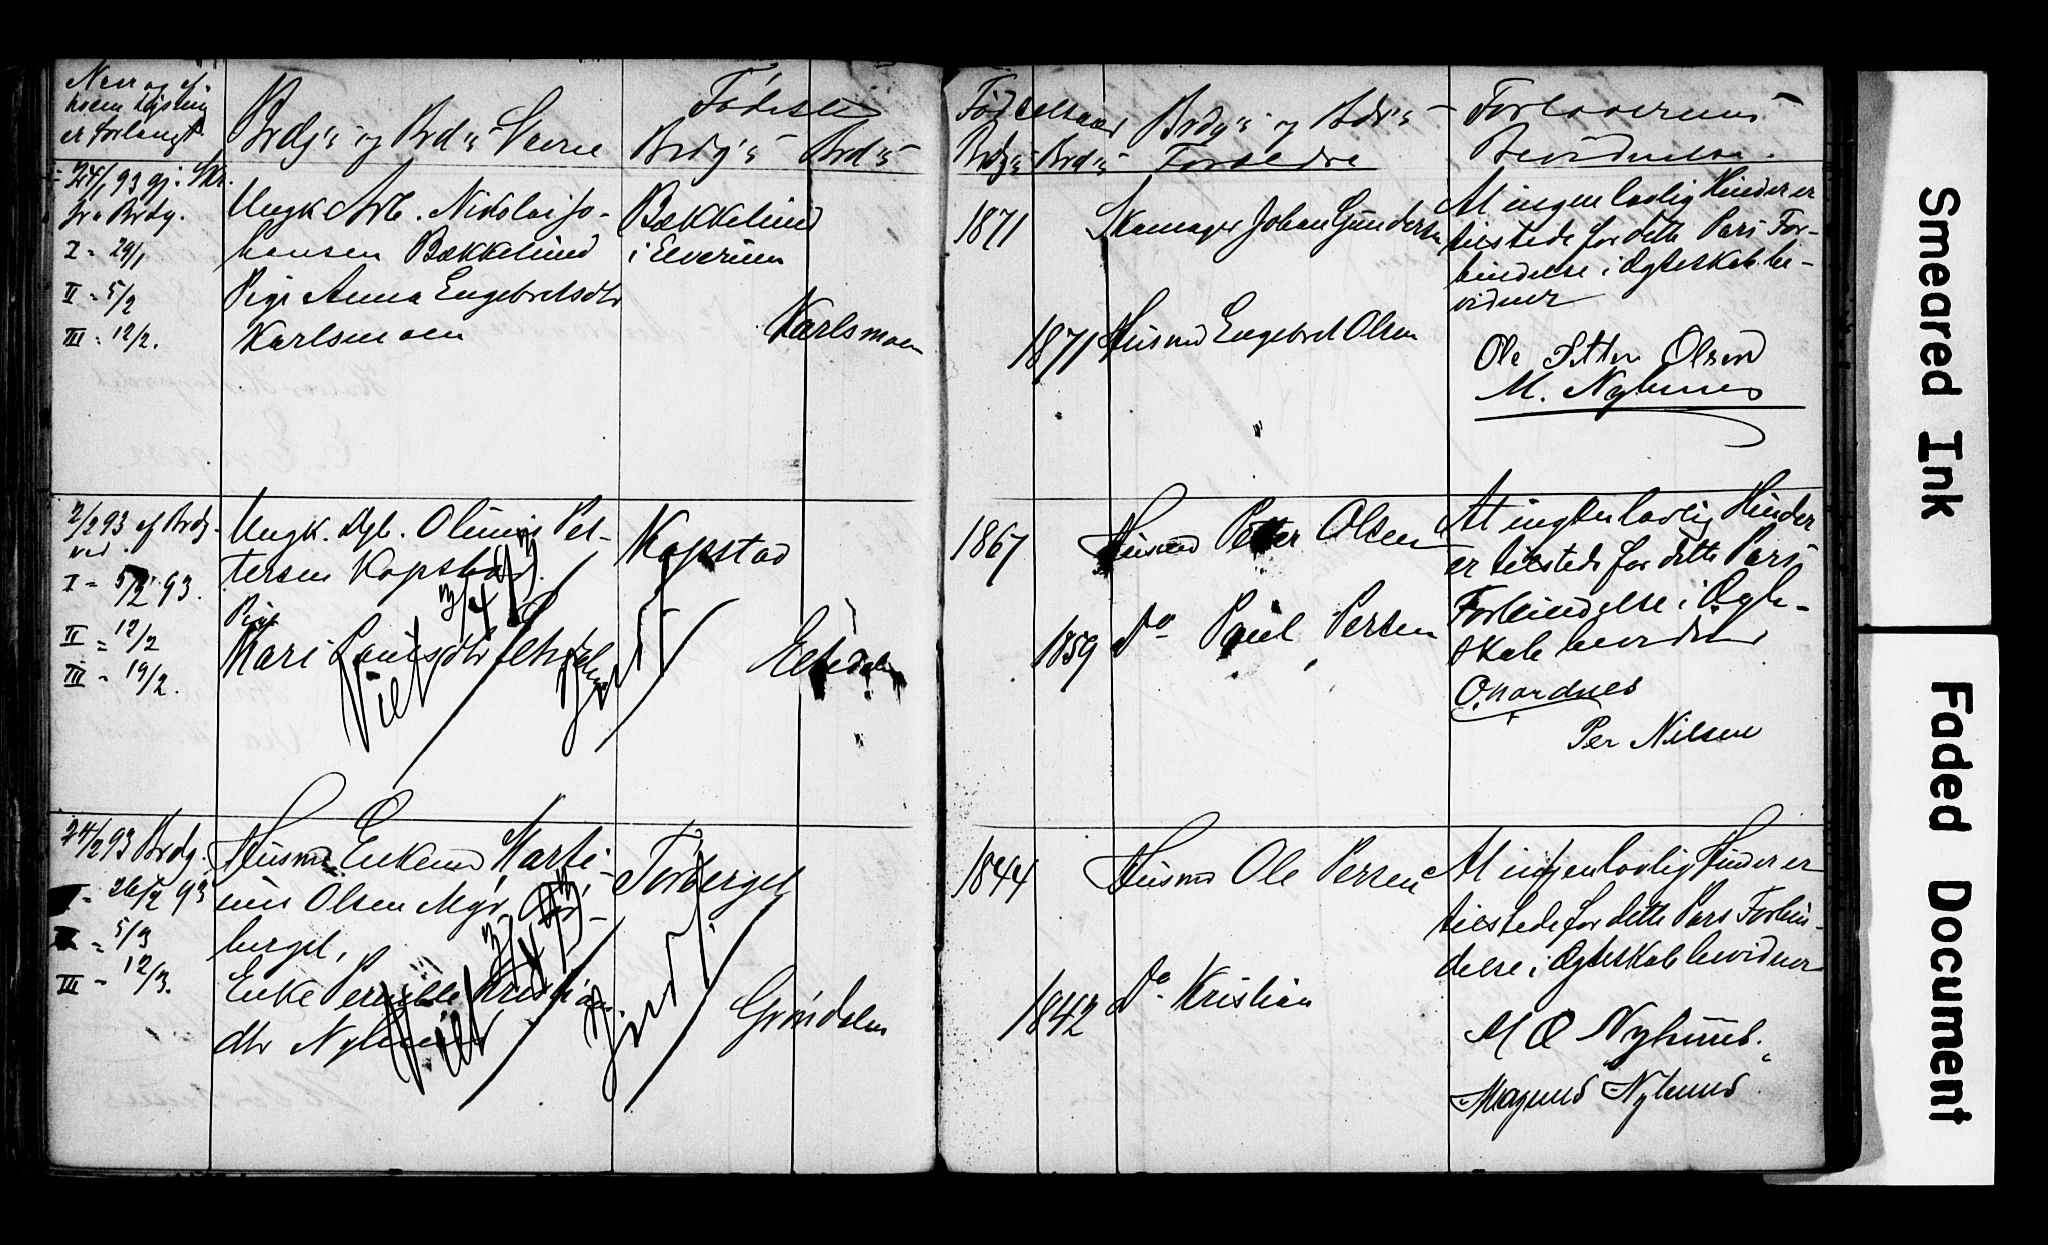 Naar og af
hvem Lysning
er forlangt.
Brdg's og Brd's Navne
Fødested
Brdg's Brd's
Fødselsaar
Brdg's Brd's
Brdg's og Brd's
Forældre
Forlovernes
Bevidnelse.
24/1 93 gj. Skr.
fra Brdg.
I = 29/1
II = 5/2
III = 12/2.
Ungk Arb. Nikolai Jo-
hansen Bækkelund
Pige Anna Engebretsdtr
Karlsmoen
Bækkelund
i Elverum
Karlsmoen
1871
1871
Skomager Johan Gundersen
Husmd Engebret Olsen
At ingen lovlig Hinder er
tilstede for dette Pars For-
bindelse i Ægteskab be-
vidner
Ole Petter Olsen
M. Nyhuus
2/2 93 af Brdg.
I = 5/2 93.
II = 12/2
III = 19/2.
Ungk. Dgb. Olinus Pet-
tersen Kopstad.
Pige
Mari Paulsdtr
Viet 3/4 93
Kopstad
1867
1859
Husmd Petter Olsen
Do Paul Persen
At ingen lovlig Hinder
er tilstede for dette Pars
Forbindelse i Ægte-
skab bevidner
O. Nordnes
Per Nilsen
24/2 93 Brdg.
I = 26/2 93
II = 5/3
III = 12/3.
Husmd Enkemd Marti-
nus Olsen Myr, Tor-
berget,
Enke Pernille Kristian
dtr Nyhuus
Viet 3/4 93
Torberget
Grøndalen
1844
1842
Husmd Ole Persen
Do Kristian
At ingen lovlig Hinder er
tilstede for dette Pars Forbin-
delse i Ægteskab bevidner
M O Nyhuus.
Magnus Nyhuus
Smeared Ink
Faded Document